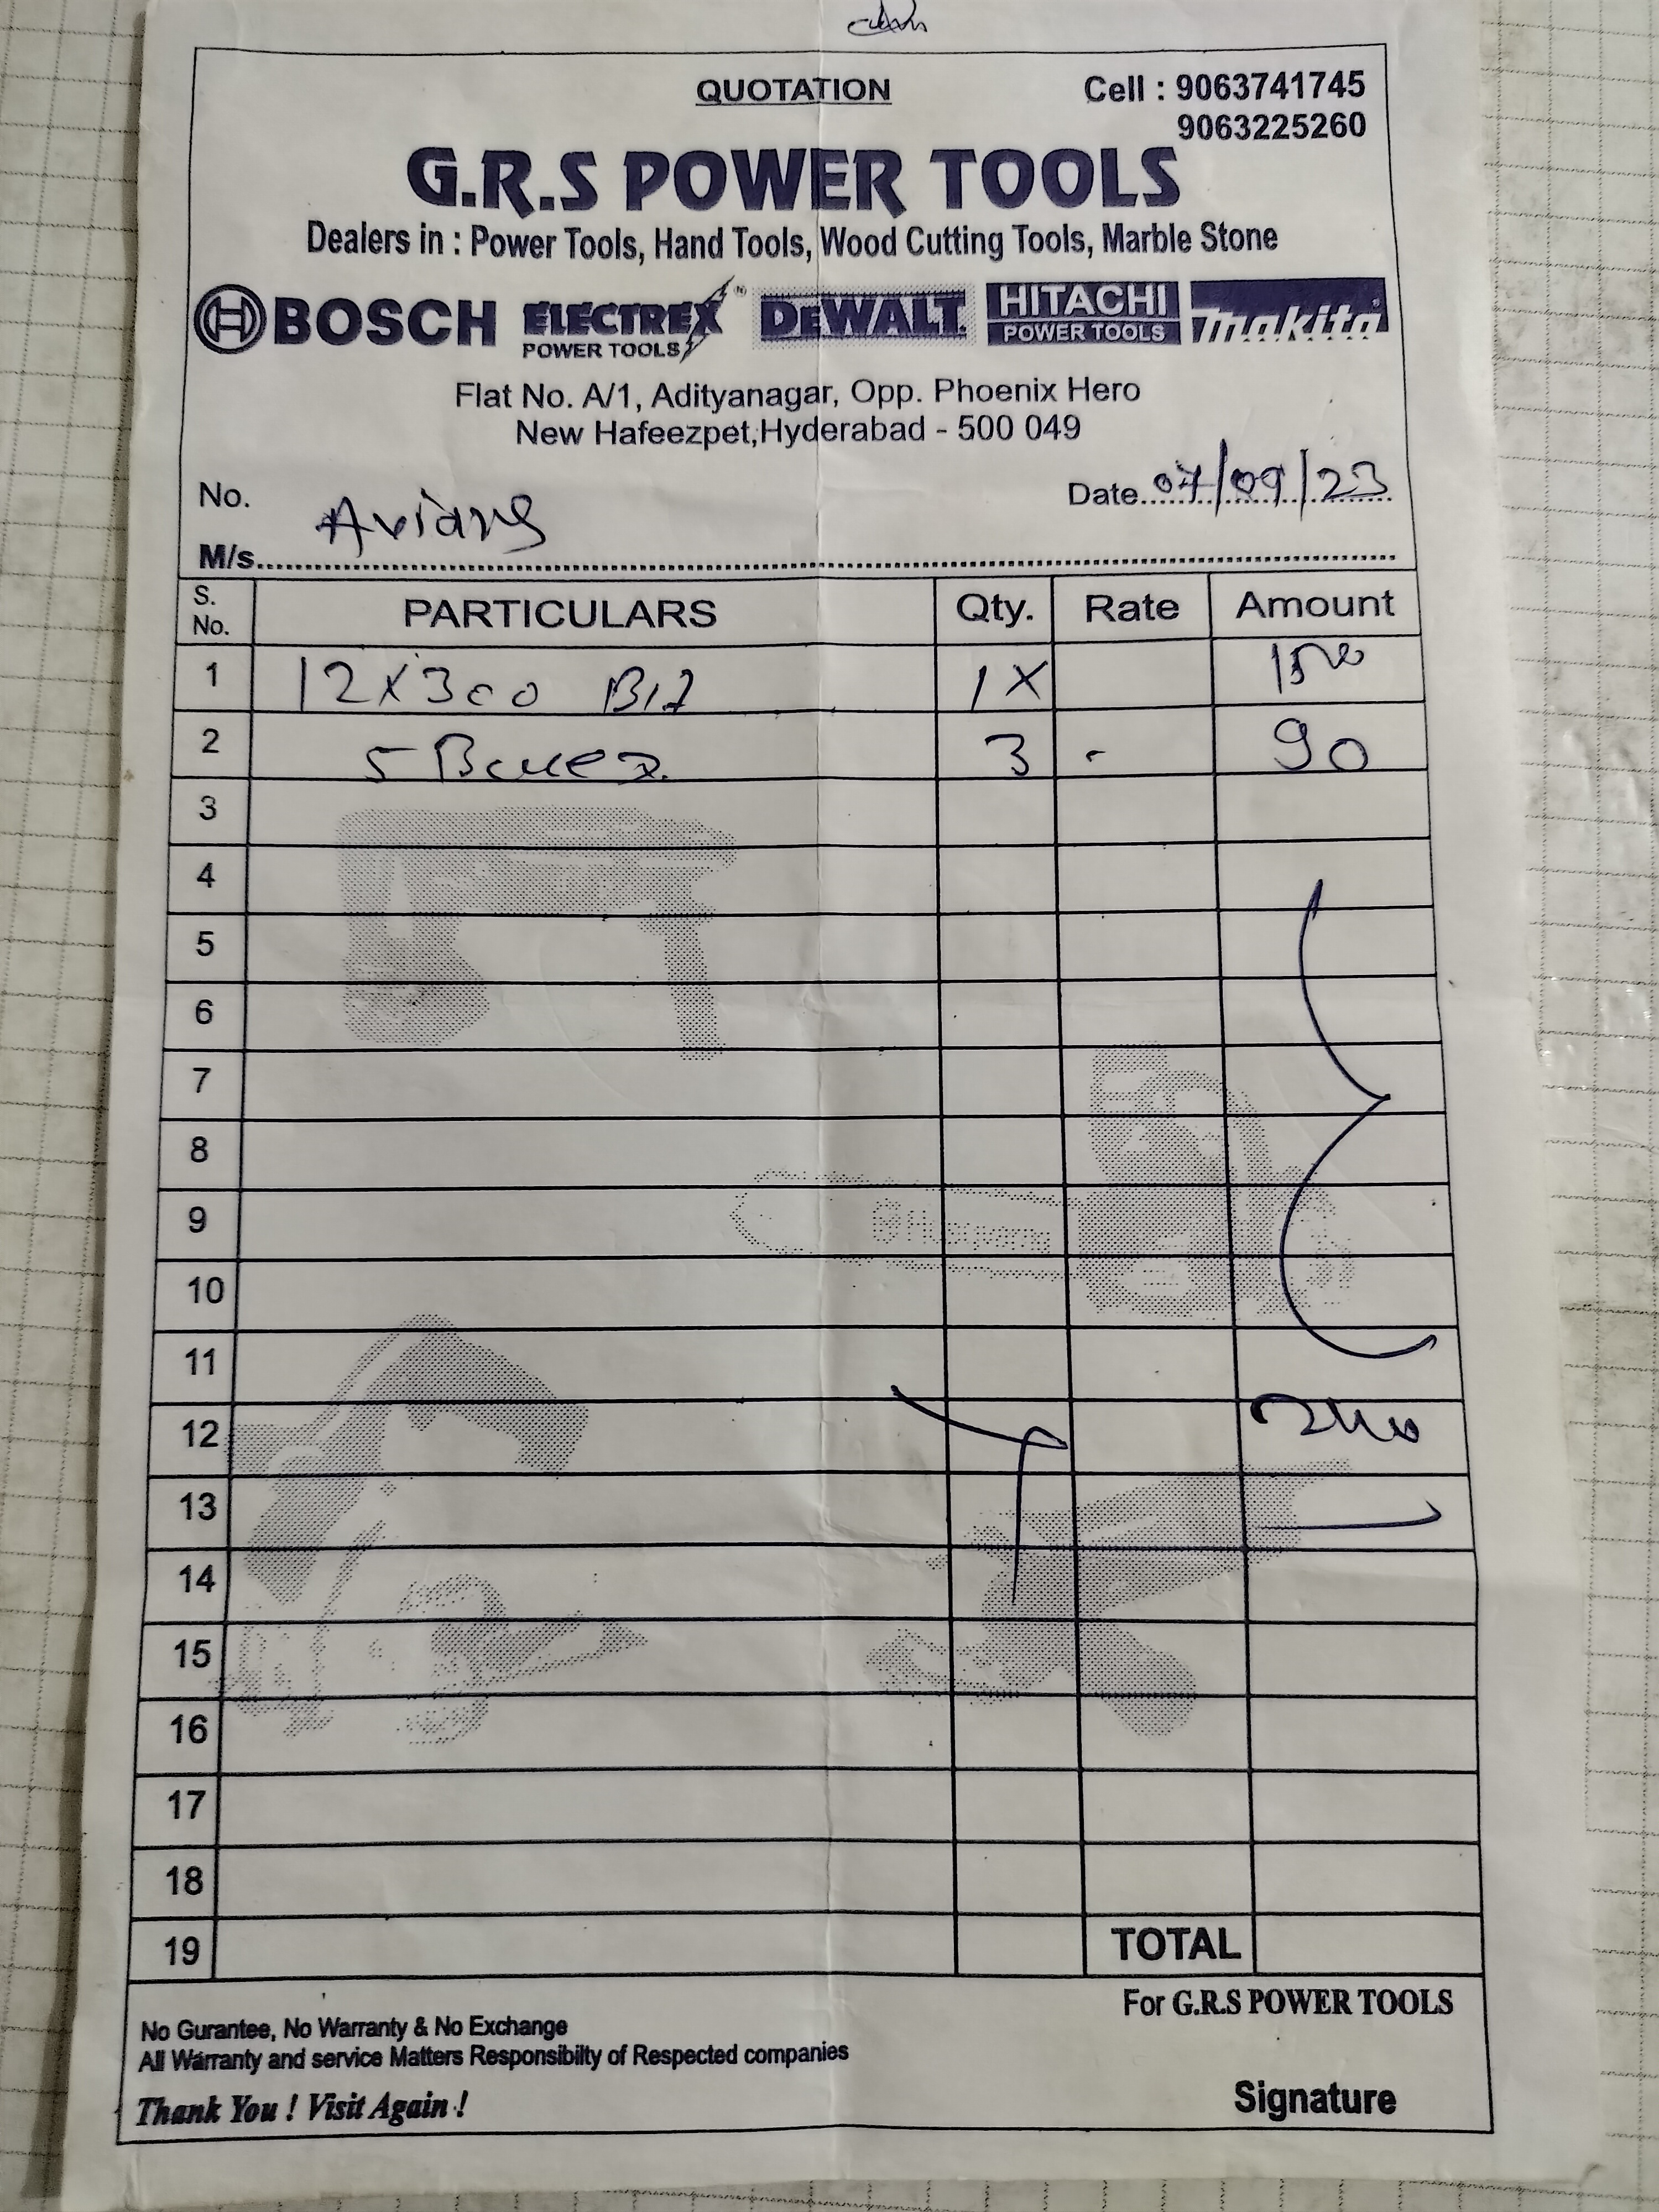 QUOTATION
Cell : 9063741745
9063225260
G.R.S POWER TOOLS
Dealers in : Power Tools, Hand Tools, Wood Cutting Tools, Marble Stone
BOSCH ELECTREX POWER TOOLS DEWALT HITACHI POWER TOOLS makita
Flat No. A/1, Adityanagar, Opp. Phoenix Hero
New Hafeezpet, Hyderabad - 500 049
No. Date 07/09/23
M/s. Avians
S. No. PARTICULARS Qty. Rate Amount
1 12X300 Bit 1X
2 5 3 - 90
3
4
5
6
7
8
9
10
11
12
13
14
15
16
17
18
19 TOTAL
For G.R.S POWER TOOLS
No Gurantee, No Warranty & No Exchange
All Warranty and service Matters Responsibilty of Respected companies
Thank You ! Visit Again !
Signature